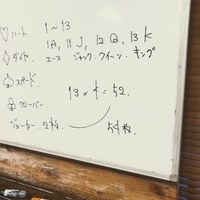 ♡ハート 1～13
1A, 11J, 12Q, 13K
♢ダイヤ エース ジャック クイーン キング
♤スペード
13×4=52
♧クローバー
ジョーカー 2枚
54枚